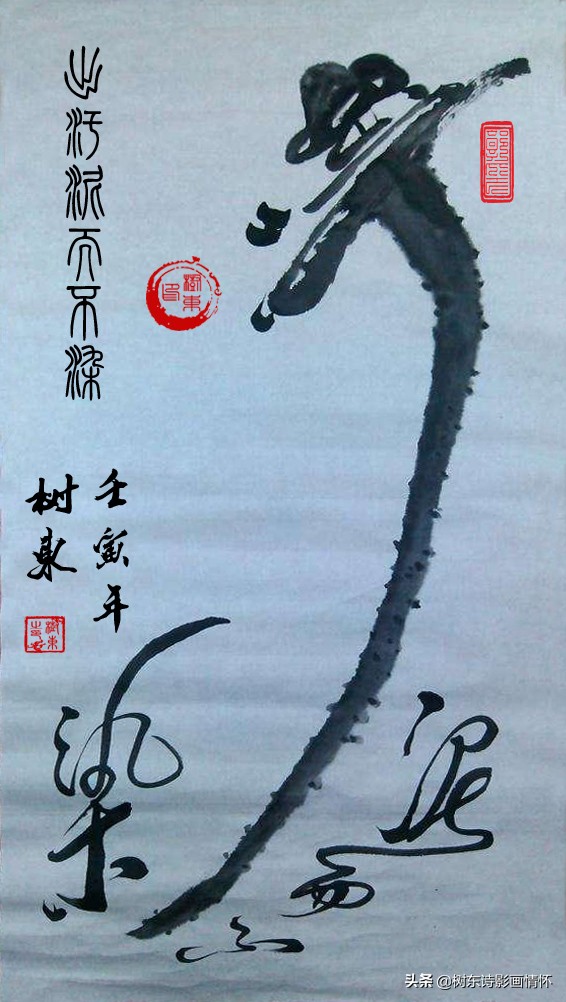 出污泥而不染
壬寅年
树东
樹東印
泥而不染
头条 @树东诗影画情怀